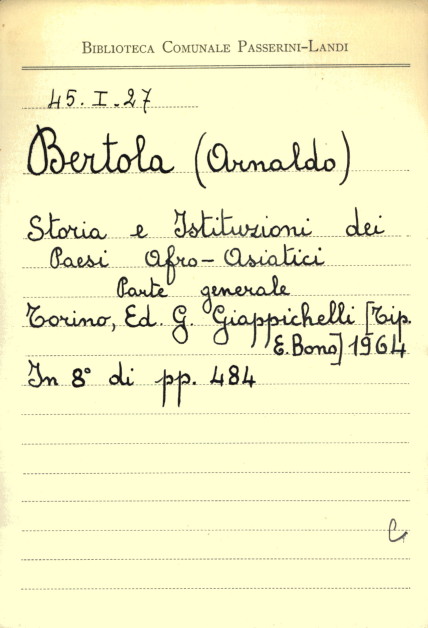 BIBLIOTECA COMUNALE PASSERINI-LANDI
45. I. 27
Bertola (Arnaldo)
Storia e Istituzioni dei
Paesi Afro-Asiatici
Parte generale
Torino, Ed. G. Giappichelli [Tip.
E. Bono] 1964
In 8° di pp. 484
C